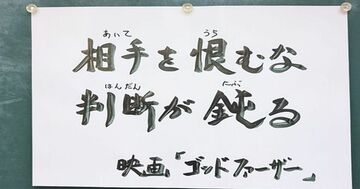 あいて うら
相手を恨むな
はんだん にぶ
判断が鈍る
映画「ゴッドファーザー」